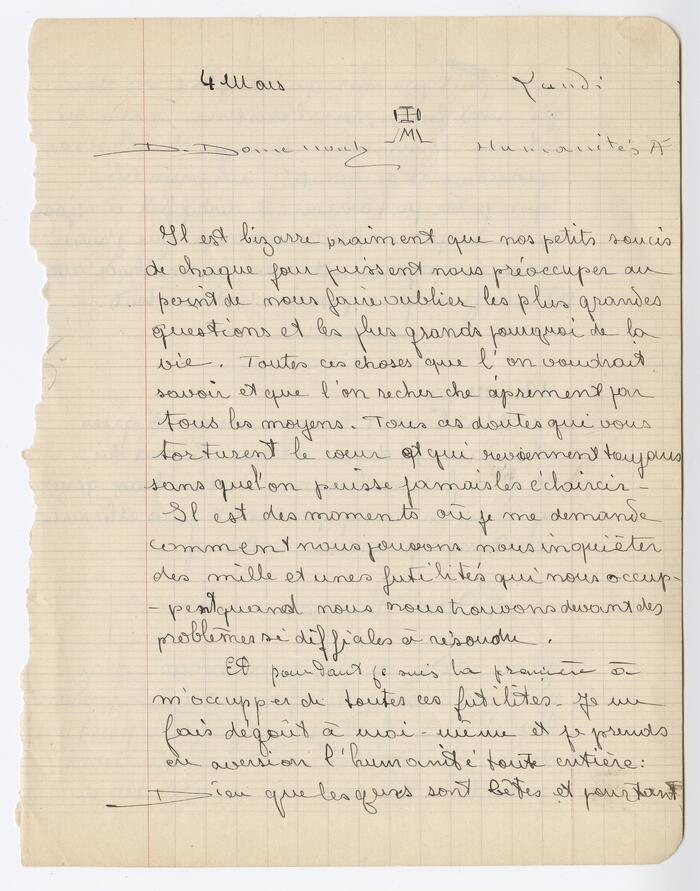 4 Mars Lundi
I
M
D. Domenach Humanités A
Il est bizarre vraiment que nos petits soucis
de chaque jour puissent nous préoccuper au
point de nous faire oublier les plus grandes
questions et les plus grands pourquoi de la
vie. Toutes ces choses que l'on voudrait
savoir et que l'on recherche âprement par
tous les moyens. Tous ces doutes qui vous
torturent le coeur et qui reviennent toujours
sans que l'on puisse jamais les éclaircir -
Il est des moments où je me demande
comment nous pouvons nous inquiéter
des mille et unes futilités qui nous occup-
- pent quand nous nous trouvons devant des
problèmes si difficiles à résoudre.
Et pourtant je suis la première à
m'occupper de toutes ces futilités - Je me
fais dégoût à moi-même et je prends
en aversion l'humanité toute entière:
Dieu que les gens sont bêtes et pourtant